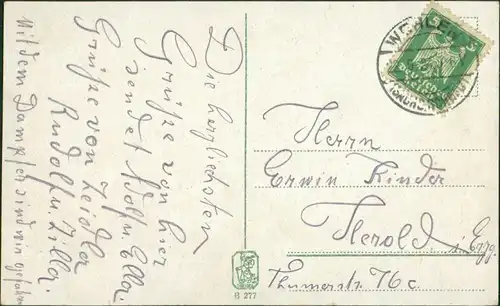 Die herzliechsten
Grüße von hier
sendet Adolf u. Ella.
Grüße von Zeidler
Rudolf u. Zilla.
Mit dem Dampfer sind wir gefahren
WEHLEN
DEUTSCHES
5
Herrn
Erwin Kinder
Herold i. Erzg.
Thumerstr. 76 c.
B 277